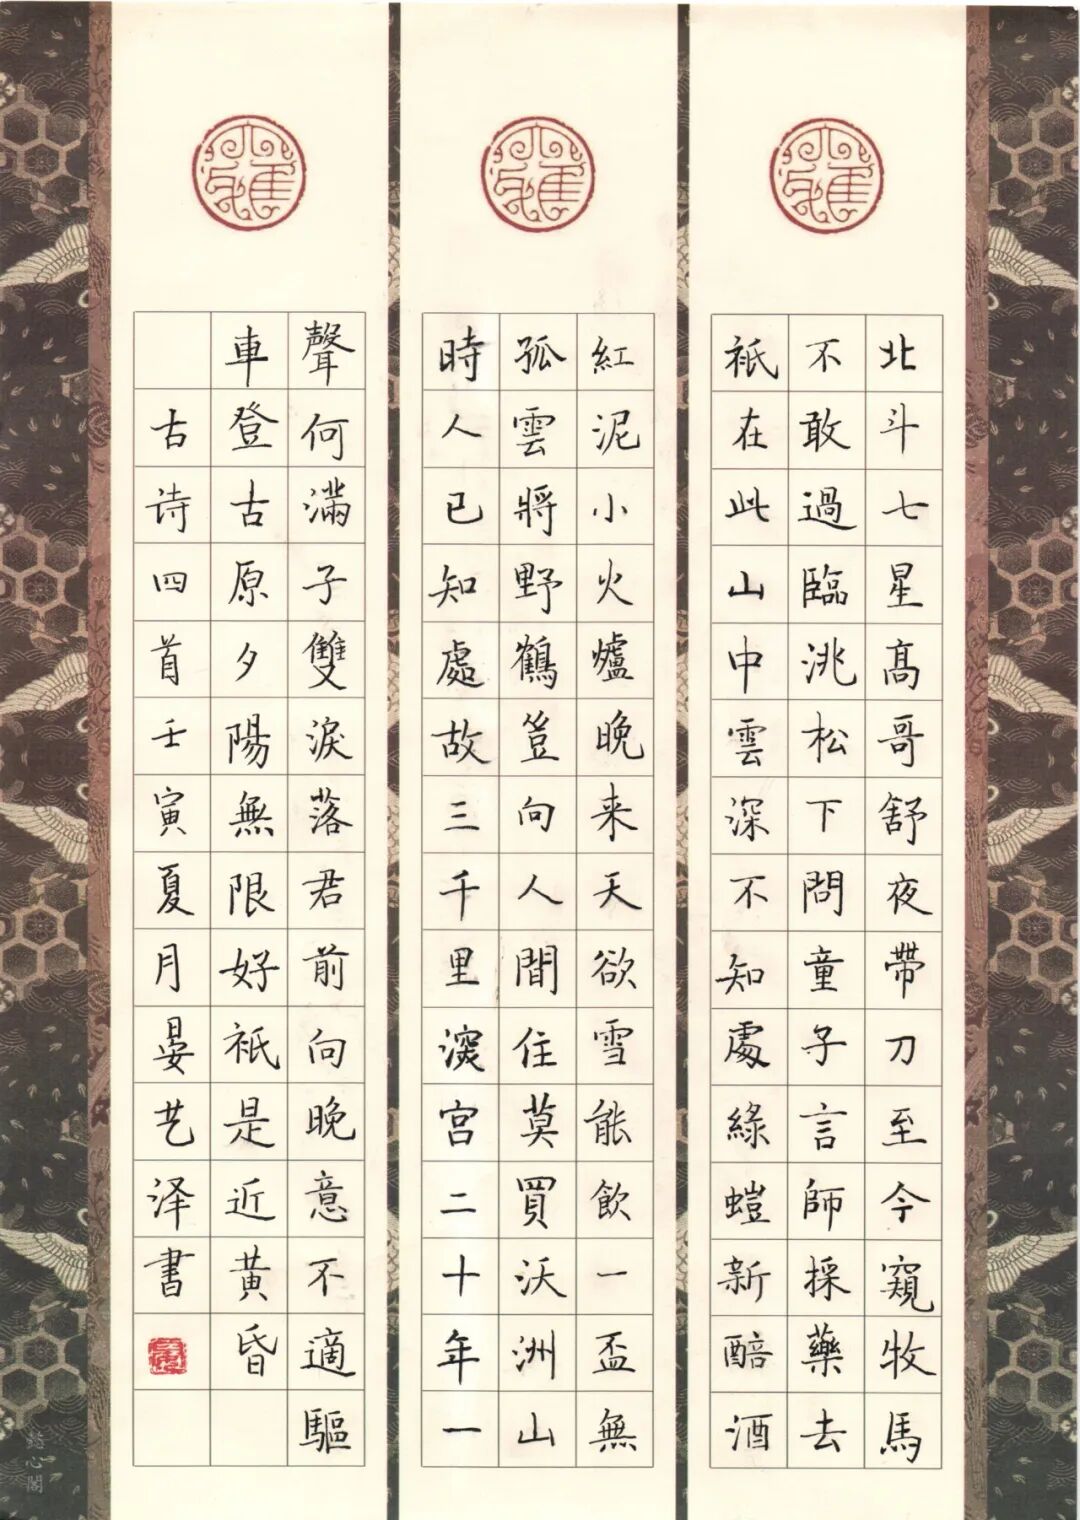 北斗七星高哥舒夜帶刀至今窺牧馬
不敢過臨洮松下問童子言師採藥去
衹在此山中雲深不知處綠螘新醅酒
紅泥小火爐晚来天欲雪能飲一盃無
孤雲將野鶴豈向人間住莫買沃洲山
時人已知處故三千里深宮二十年一
聲何滿子雙淚落君前向晚意不適驅
車登古原夕陽無限好衹是近黃昏
古诗四首壬寅夏月晏艺泽書
懿心閣